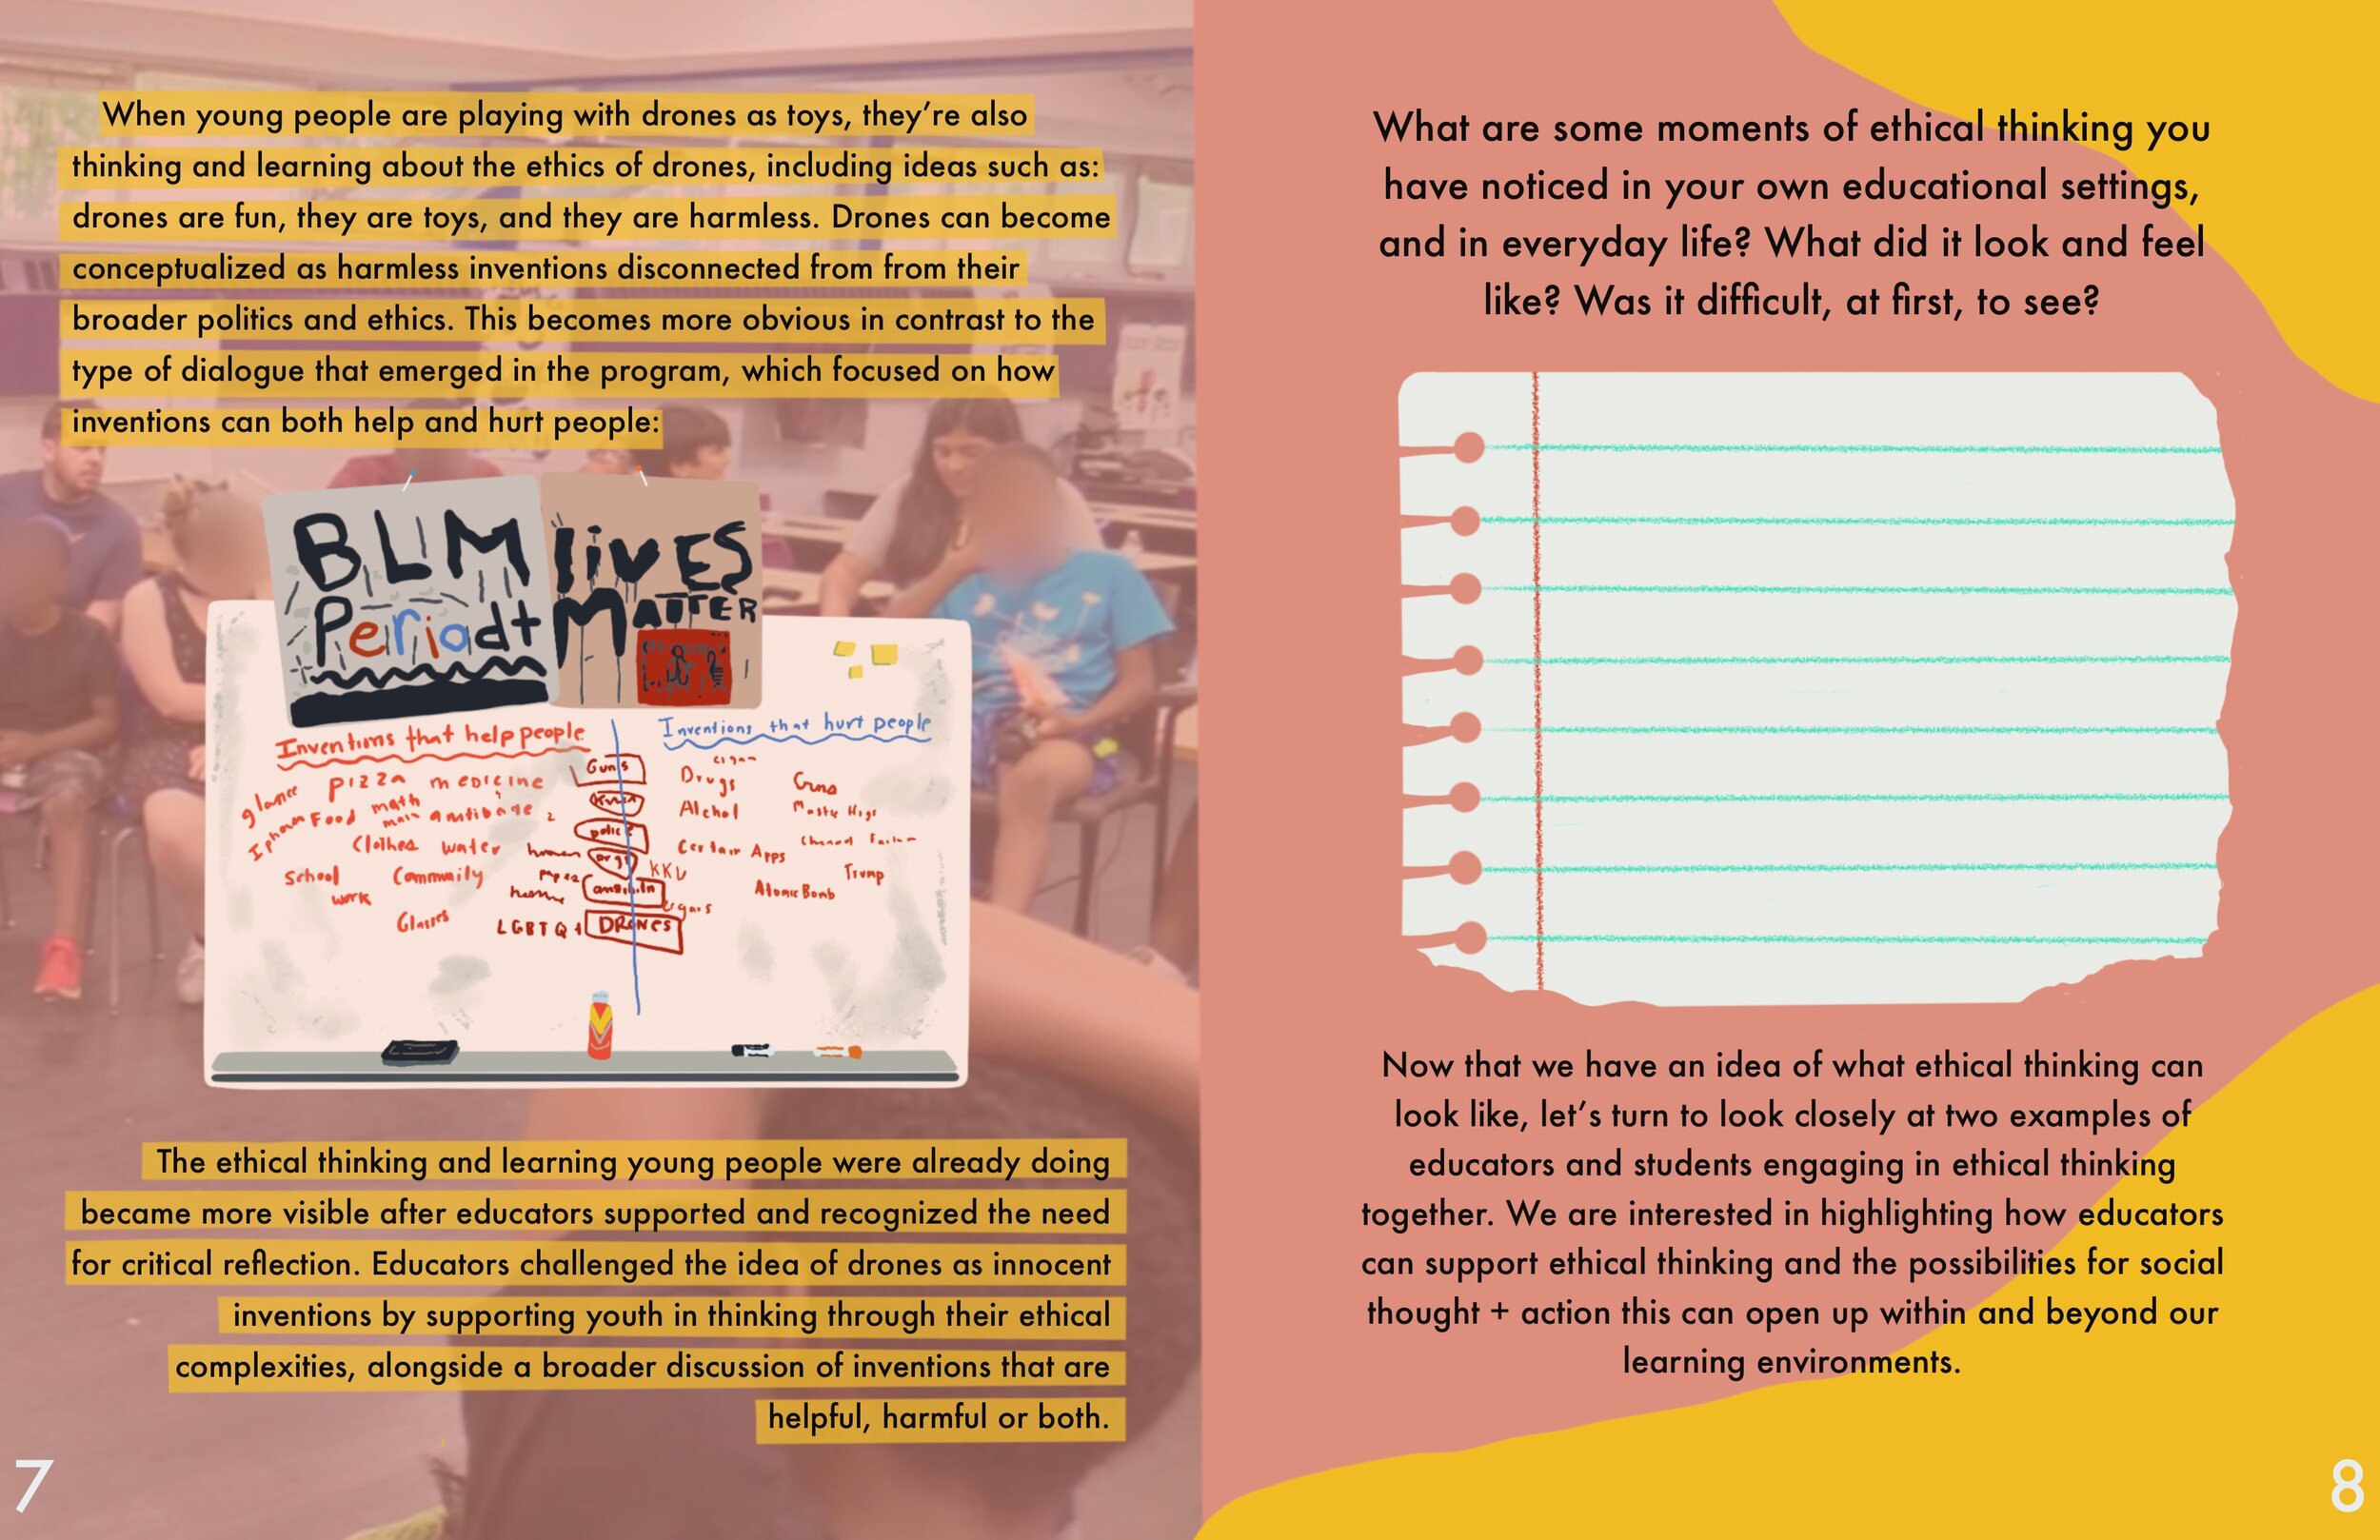 When young people are playing with drones as toys, they’re also
thinking and learning about the ethics of drones, including ideas such as:
drones are fun, they are toys, and they are harmless. Drones can become
conceptualized as harmless inventions disconnected from from their
broader politics and ethics. This becomes more obvious in contrast to the
type of dialogue that emerged in the program, which focused on how
inventions can both help and hurt people:
BLM
Periodt
LiVES
MATTER
Inventions that help people
pizza medicine
math
Food
Clothes water
School Community
work
Glasses
Guns
human
LGBTQ+ DRONES
Inventions that hurt people
Drugs Guns
Alchol
Certain Apps
Trump
Atomic Bomb
The ethical thinking and learning young people were already doing
became more visible after educators supported and recognized the need
for critical reflection. Educators challenged the idea of drones as innocent
inventions by supporting youth in thinking through their ethical
complexities, alongside a broader discussion of inventions that are
helpful, harmful or both.
7
What are some moments of ethical thinking you
have noticed in your own educational settings,
and in everyday life? What did it look and feel
like? Was it difficult, at first, to see?
Now that we have an idea of what ethical thinking can
look like, let’s turn to look closely at two examples of
educators and students engaging in ethical thinking
together. We are interested in highlighting how educators
can support ethical thinking and the possibilities for social
thought + action this can open up within and beyond our
learning environments.
8